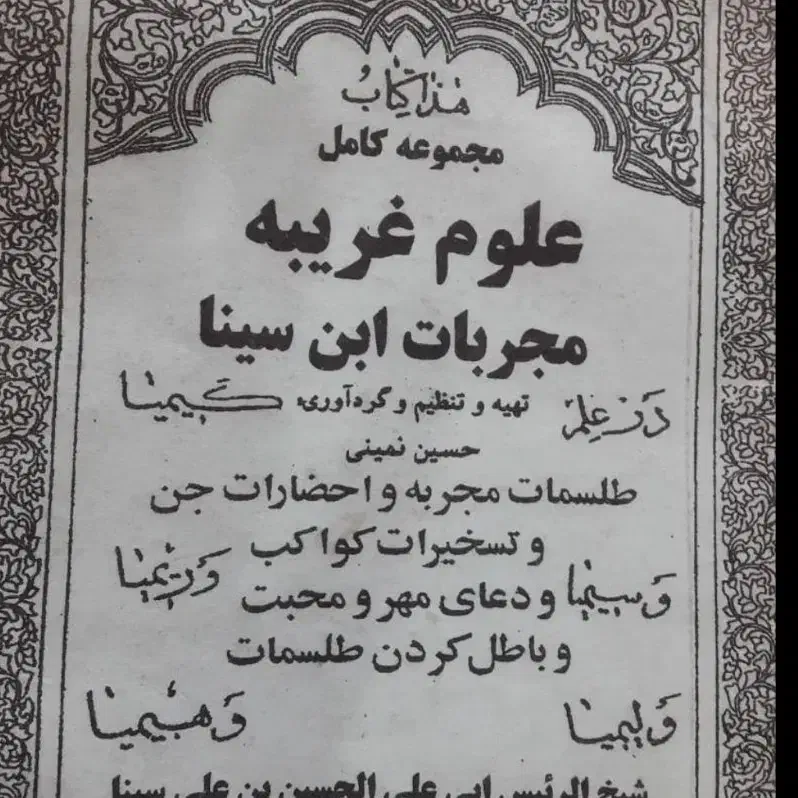 هذا کتاب
مجموعه کامل
علوم غریبه
مجربات ابن سینا
در علم تهیه و تنظیم و گردآوری: کیمیا
حسین نمینی
طلسمات مجربه و احضارات جن
و تسخیرات کواکب
و سیمیا و دعای مهر و محبت و ریمیا
و باطل کردن طلسمات
و لیمیا و هیمیا
شیخ الرئیس ابی علی الحسین بن علی سینا